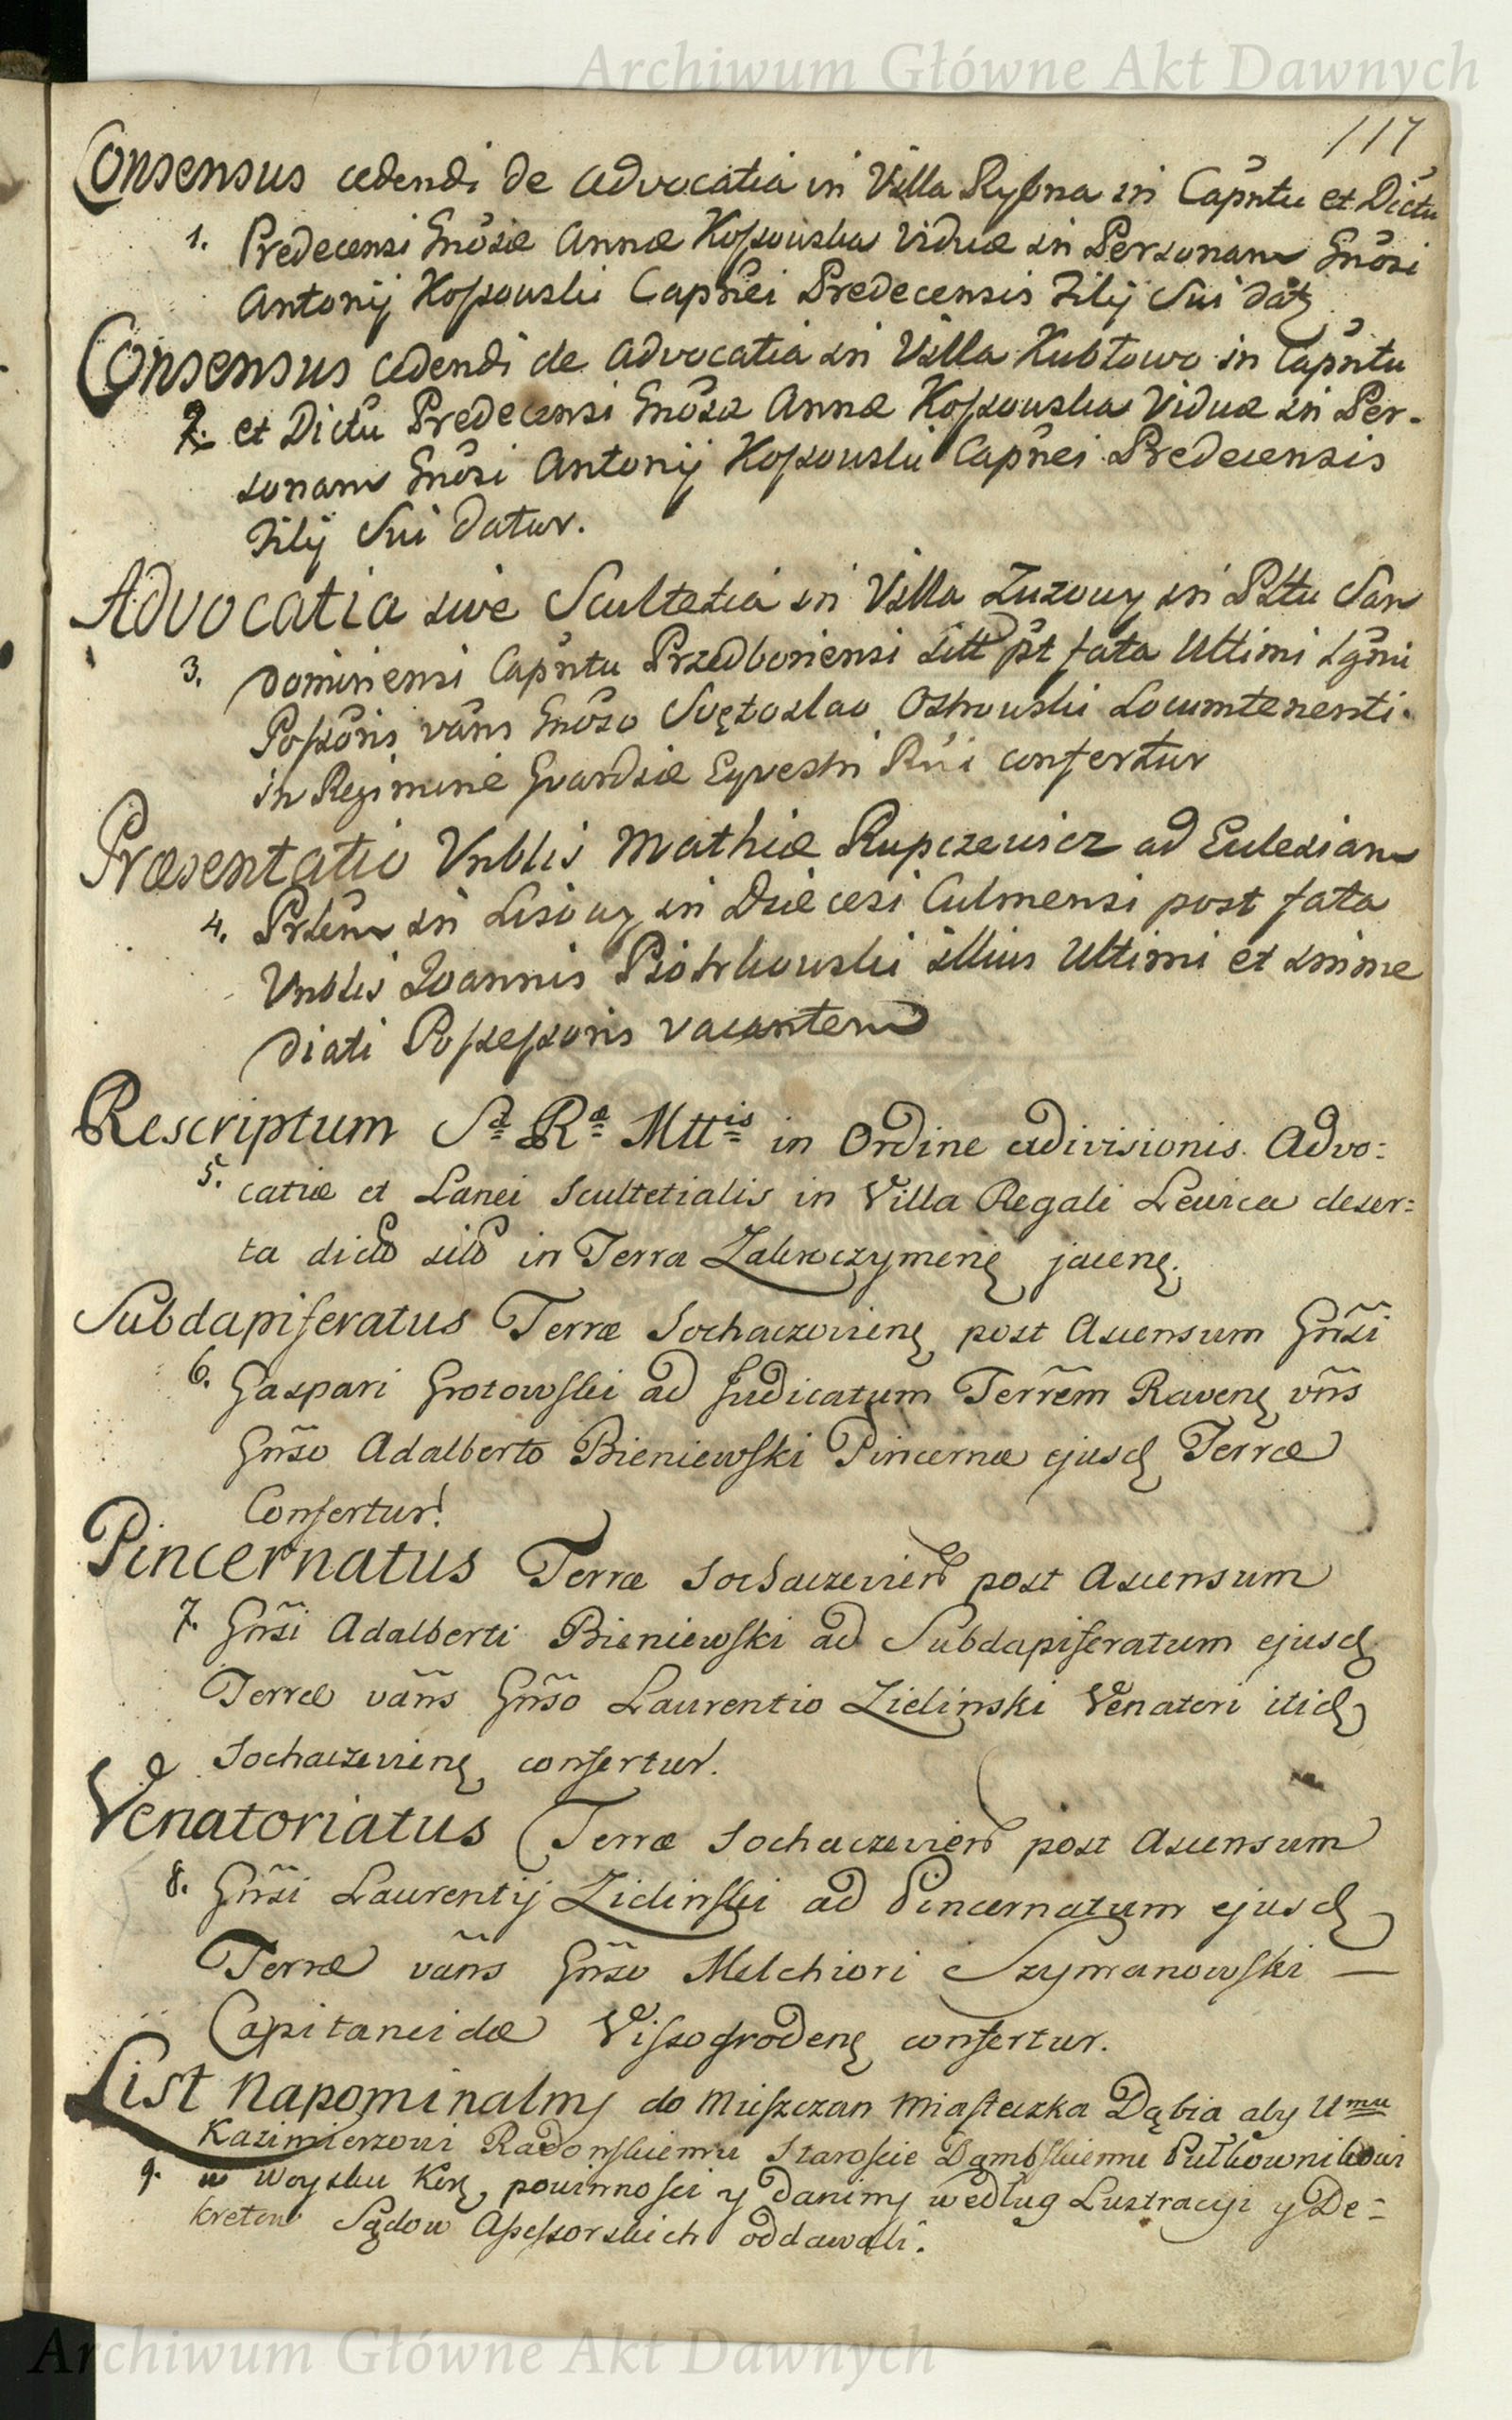 Archiwum Główne Akt Dawnych
117
Consensus cedendi de Advocatia in Villa Rybna in Capntu et Dictu
1. Predecensi Gnosæ Annæ Kossouska Viduæ in Personam Gnosi
Antonij Kossouski Capnei Predecensis Filij Sui datz
Consensus cedendi de Advocatia in Villa Kubłowo in Capntu
2. et Dictu Predecensi Gnosæ Annæ Kossouska Viduæ in Per-
sonam Gnosi Antonij Kossouski Capnei Predecensis
Filij Sui Datur.
Advocatia sive Scultetia in Villa Zuzowy in Pttu San
3. dominiensi Capntu Przedboriensi sitt pt fata Ultimi Lgmi
Possoris vans Gnoso Swętoslao Ostrouski Locumtenenti
in Regimine Gvardiæ Eqvestri Rni confertur
Præsentatio Vnblis Mathiæ Rupczewicz ad Eclesiam
4. Prlem in Lisowy in Dziecesi Culmensi post fata
Vnblis Joannis Piotrkouski illius Ultimi et imme
diati Possessoris vacantem
Rescriptum Sæ Ræ Mttis in Ordine adivisionis Advo:
5. catiæ et Lanei Scultetialis in Villa Regali Lewica deser:
ta dicto sito in Terra Zakroczymenę jacenę.
Subdapiferatus Terræ Sochaczovienę post Ascensum Gnsi
6. Gaspari Grotowski ad Judicatum Terrem Ravenę vns
Gnso Adalberto Bieniewski Pincernæ ejusd Terræ
Confertur.
Pincernatus Terræ Sochaczevien post Ascensum
7. Gnsi Adalberti Bieniewski ad Subdapiferatum ejusd
Terræ vans Gnso Laurentio Zielinski Venatori itid
Sochaczevienę confertur.
Venatoriatus Terræ Sochaczevien post Ascensum
8. Gnsi Laurentij Zielinski ad Pincernatum ejusd
Terræ vans Gnso Melchiori Szymanowski —
Capitaneidæ Vissogrodenę confertur.
List Napominalny do Mieszczan Miasteczka Dąbia aby Umu
Kazimierzowi Radonskiemu Staroscie Dąmbskiemu Pułkownikowi
9. w Woysku Kor, powinnosci y Daniny według Lustracyi y De-
kretow Sądow Assessorskich oddawali.
Archiwum Główne Akt Dawnych